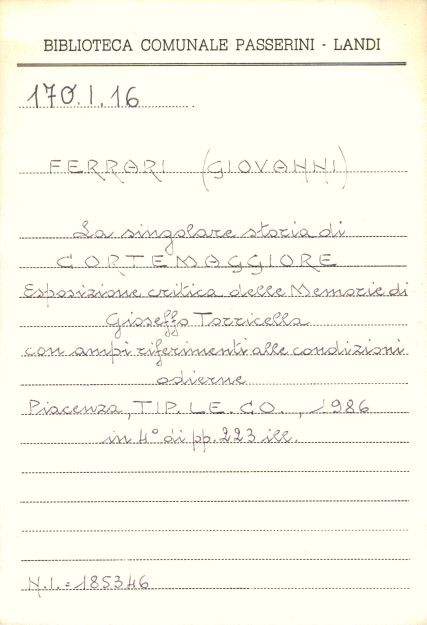 BIBLIOTECA COMUNALE PASSERINI - LANDI
170.I.16
FERRARI (GIOVANNI)
La singolare storia di
CORTEMAGGIORE
Esposizione critica delle Memorie di
Gioseffo Torricella
con ampi riferimenti alle condizioni
odierne
Piacenza, TIP.LE.CO., 1986
in 4° di pp. 223 ill.
N.I. = 185346